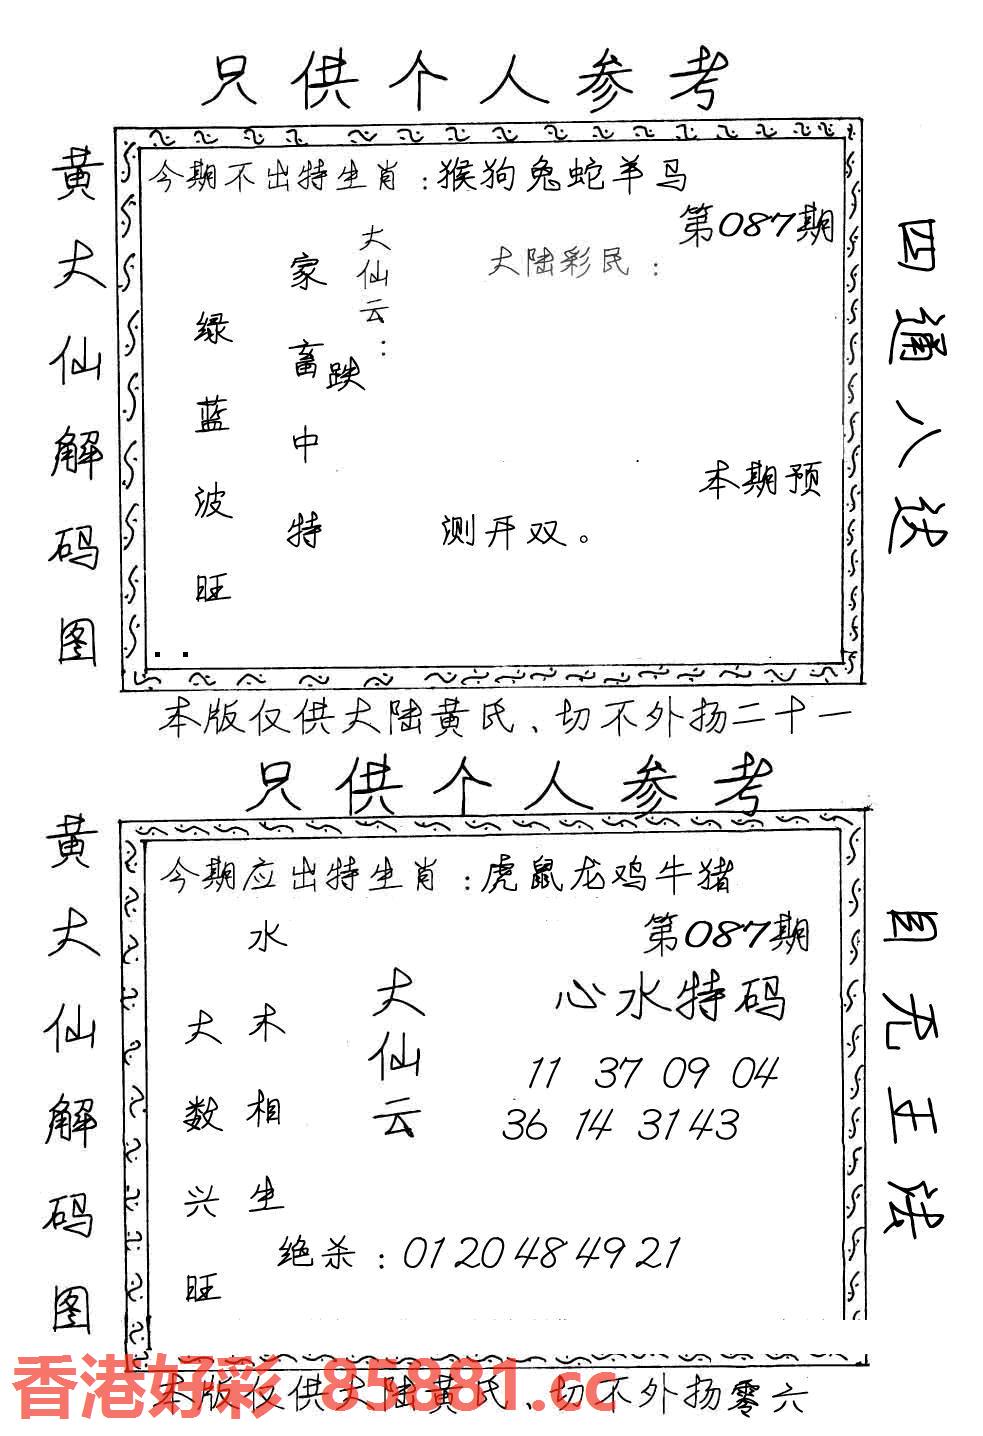 只供个人参考
黄大仙解码图
今期不出特生肖:猴狗兔蛇羊马
第087期
大陆彩民:
大仙云:
家畜中特
跌
绿蓝波旺
本期预
测开双。
四通八达
本版仅供大陆黄氏、切不外扬二十一
只供个人参考
黄大仙解码图
今期应出特生肖:虎鼠龙鸡牛猪
第087期
水木相生
大数兴旺
大仙云
心水特码
11 37 09 04
36 14 31 43
绝杀:01 20 48 49 21
目无王法
香港好彩 85881.cc
本版仅供大陆黄氏、切不外扬零六